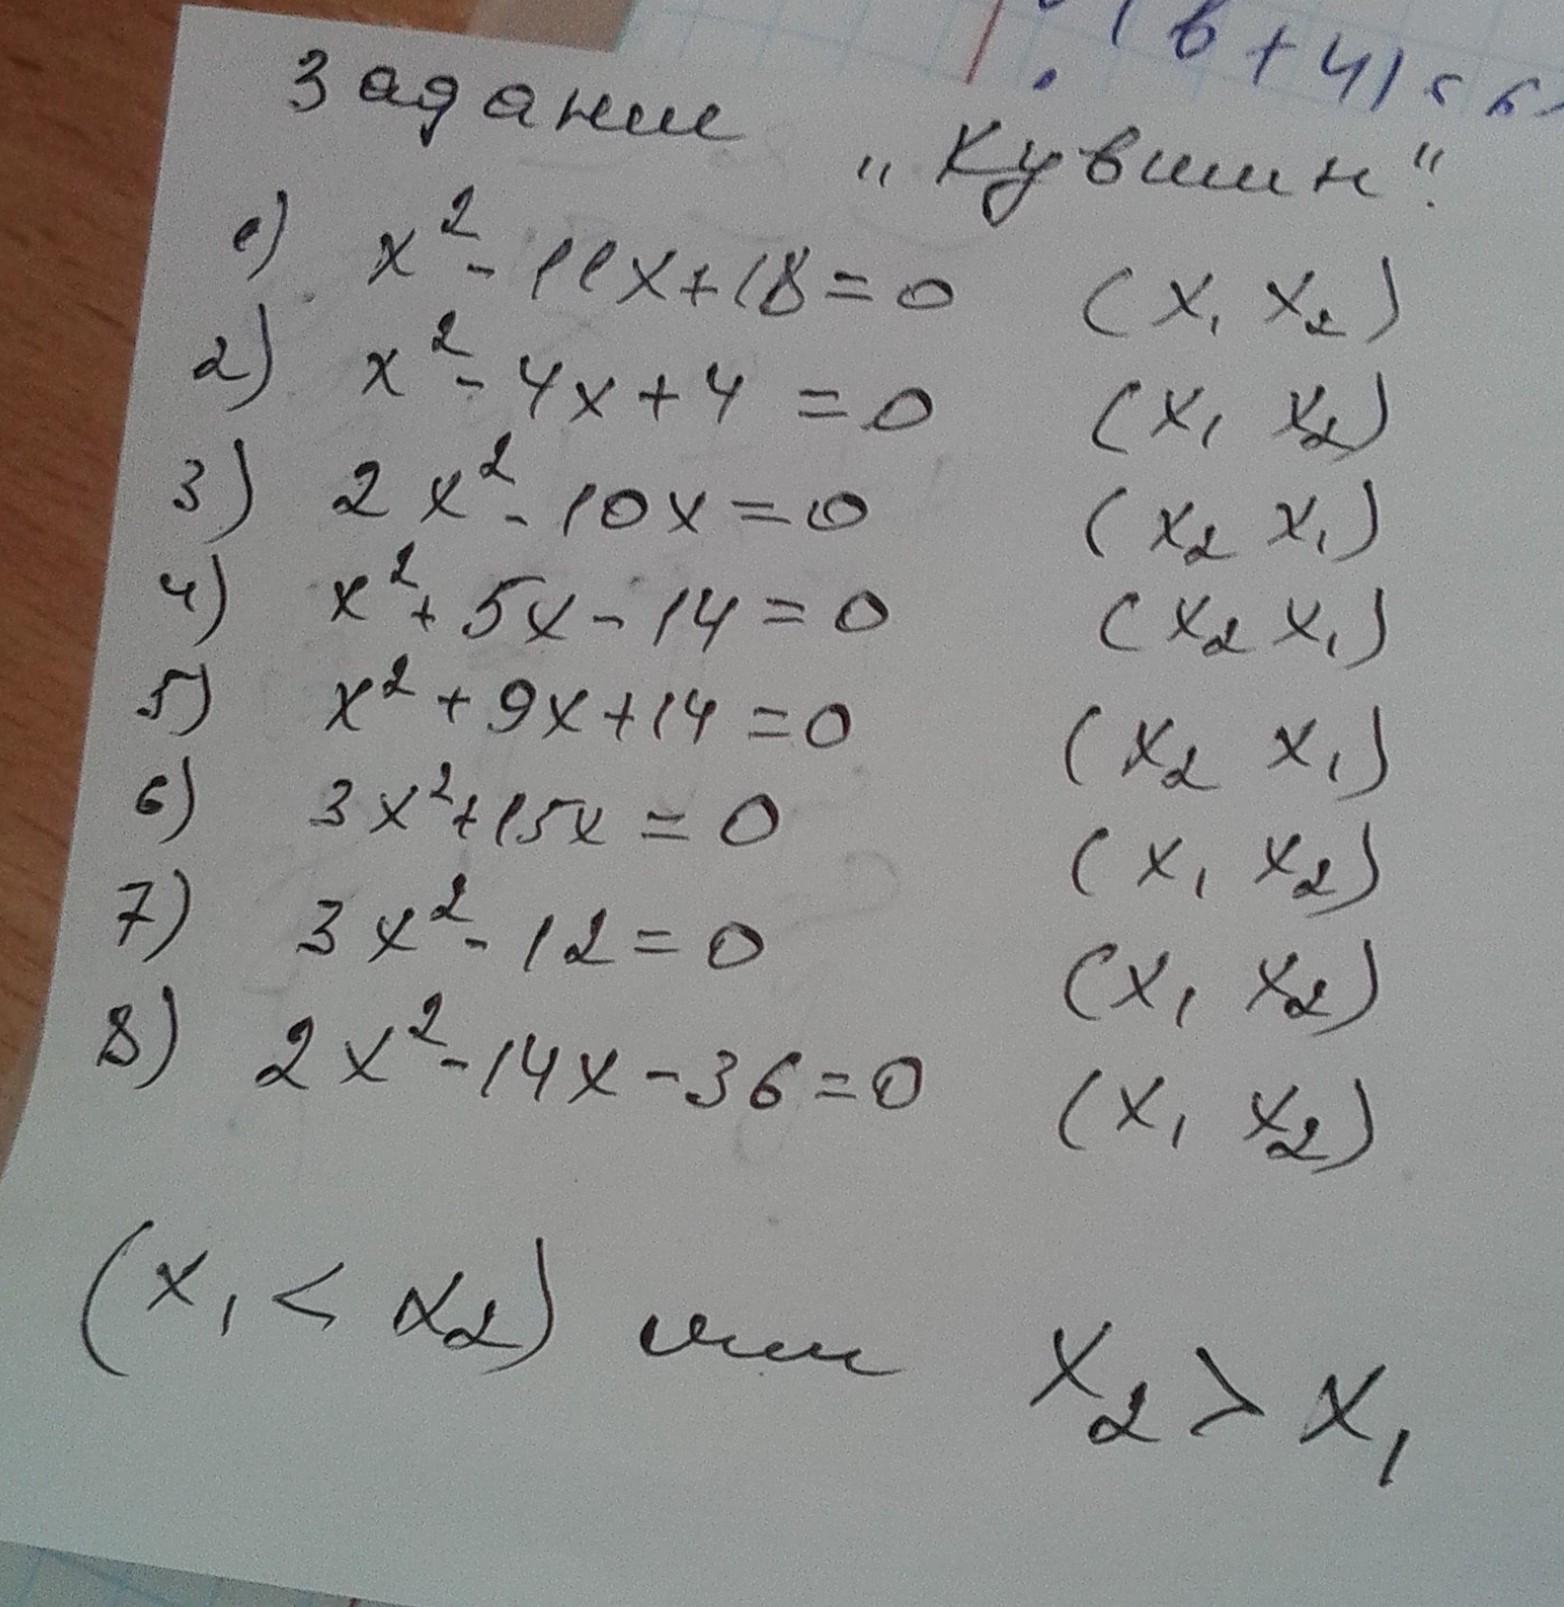 (в + 4)
Задание
„Кувшин“.
1) x² - 11x + 18 = 0 (x₁ x₂)
2) x² - 4x + 4 = 0 (x₁ x₂)
3) 2x² - 10x = 0 (x₂ x₁)
4) x² + 5x - 14 = 0 (x₂ x₁)
5) x² + 9x + 14 = 0 (x₂ x₁)
6) 3x² + 15x = 0 (x₁ x₂)
7) 3x² - 12 = 0 (x₁ x₂)
8) 2x² - 14x - 36 = 0 (x₁ x₂)
(x₁ < x₂) или x₂ > x₁